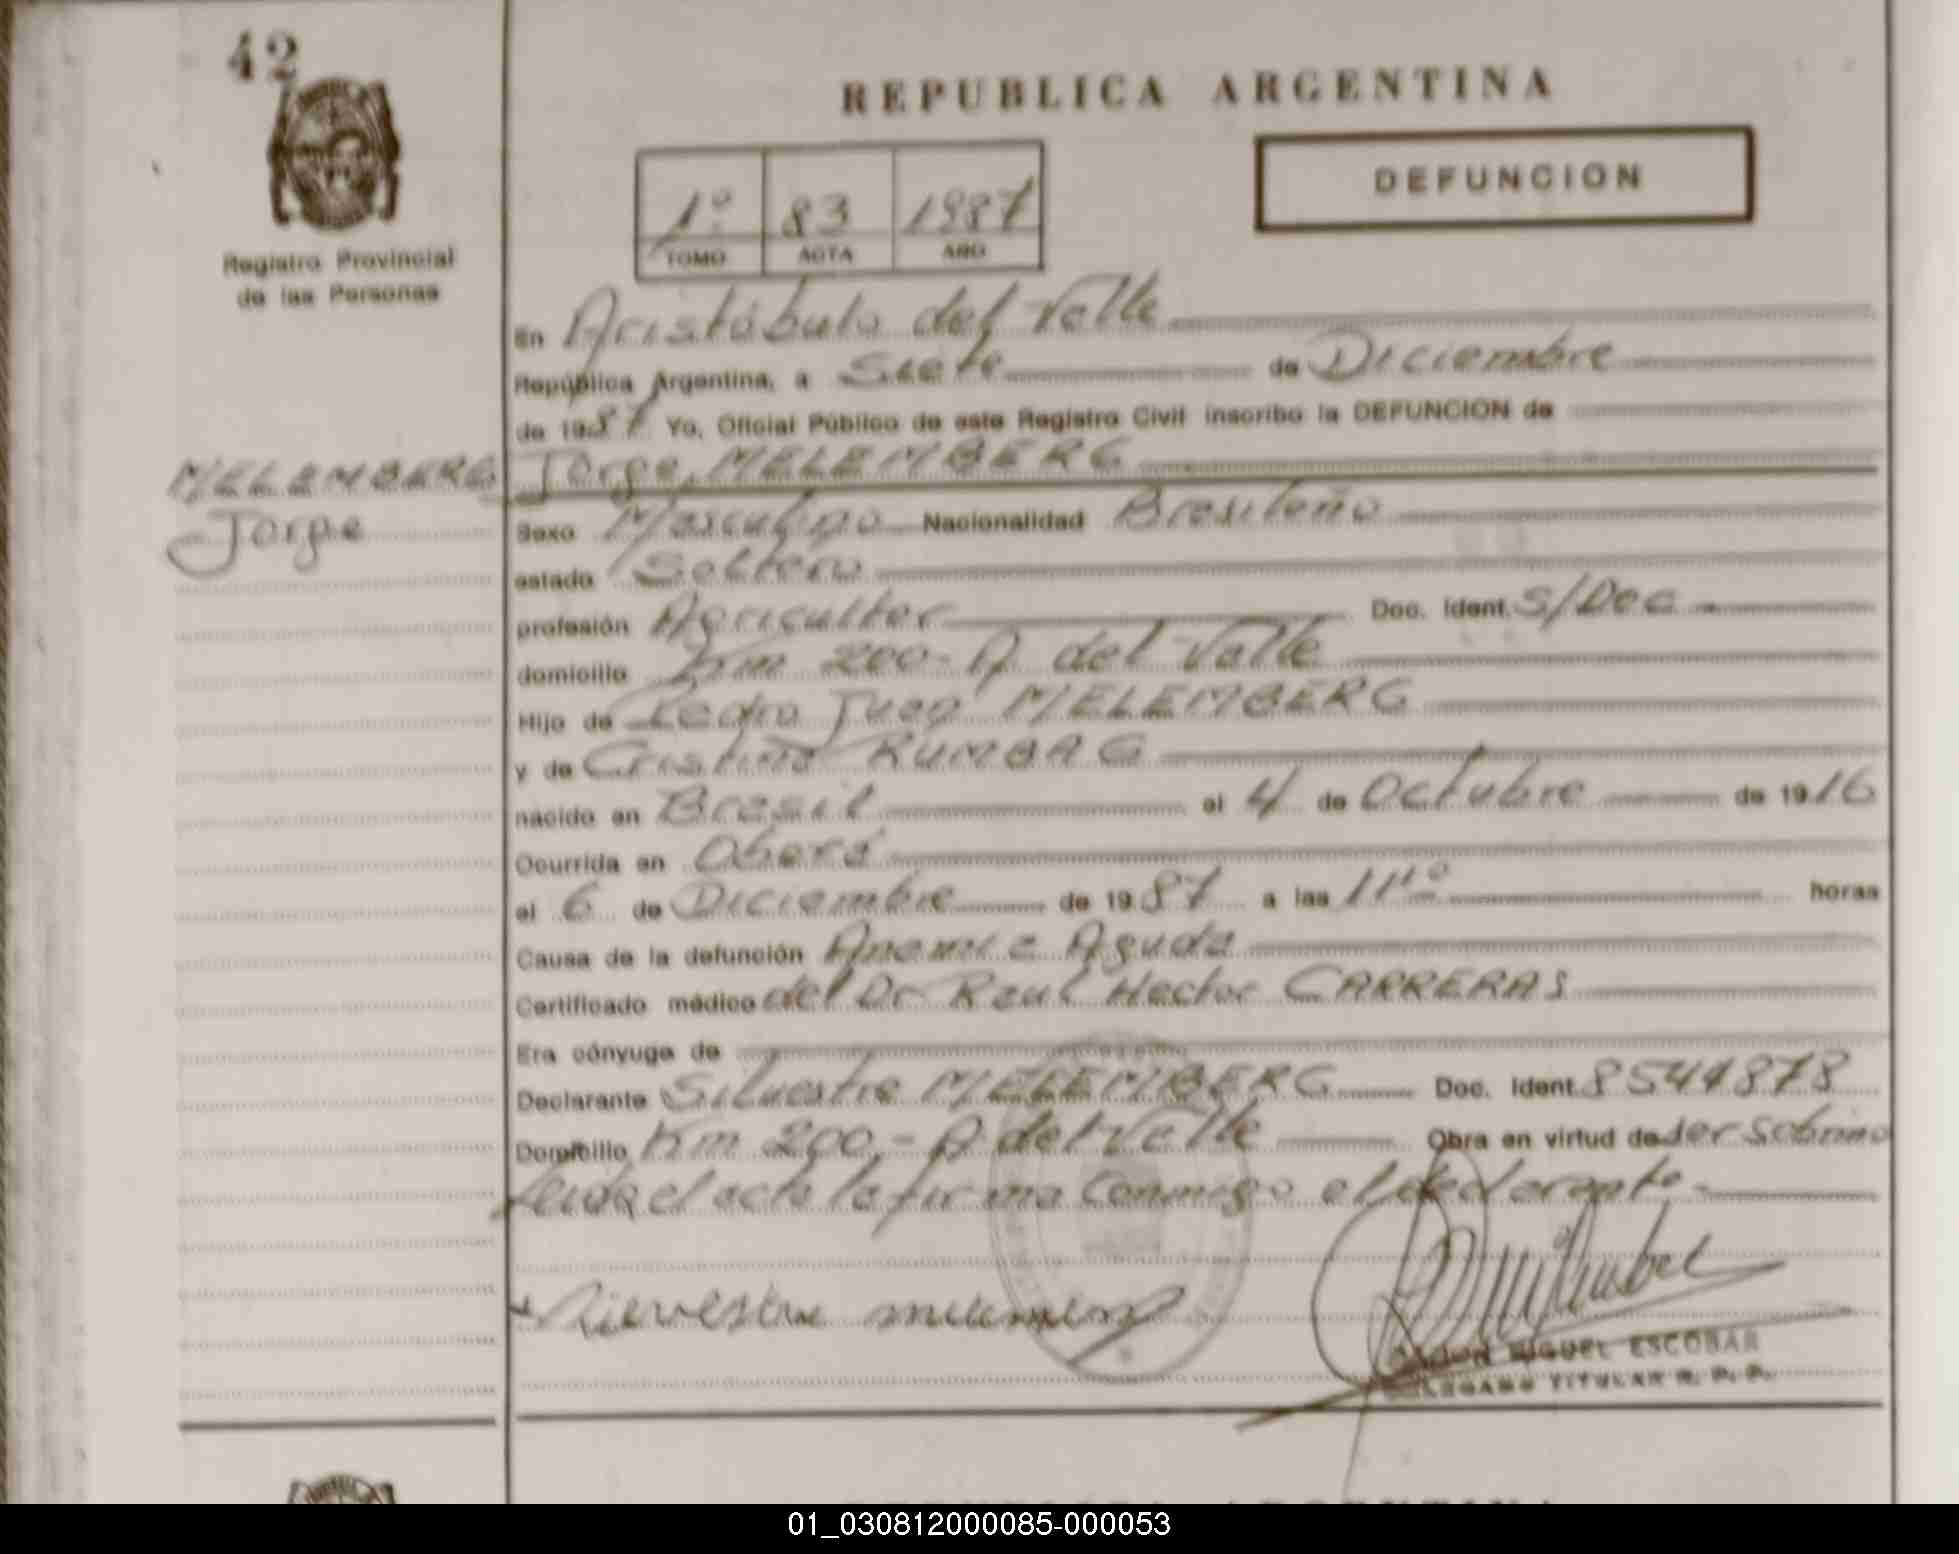 42
REPUBLICA ARGENTINA
DEFUNCION
1º 83 1987
TOMO ACTA AÑO
Registro Provincial
de las Personas
En Aristóbulo del Valle
República Argentina, a Siete de Diciembre
de 1987 Yo, Oficial Público de este Registro Civil inscribo la DEFUNCION de
MELEMBERG
Jorge
Jorge MELEMBERG
Sexo Masculino Nacionalidad Brasileño
estado Soltero
profesión Agricultor Doc. Ident. S/Doc
domicilio Km 200 - A del Valle
Hijo de Pedro Juan MELEMBERG
y de Cristina RUMBAG
nacido en Brasil el 4 de Octubre de 1916
Ocurrida en Oberá
el 6 de Diciembre de 1987 a las 11 horas
Causa de la defunción Anemia Aguda
Certificado médico del Dr Raul Hector CARRERAS
Era cónyuge de
Declarante Silvestre MELEMBERG Doc. Ident. 8544878
Domicilio Km 200 - A del Valle Obra en virtud de ser sobrino
Leida el acta la firma conmigo el declarante -
MIGUEL ESCOBAR
TITULAR R. P. P.
01_030812000085-000053